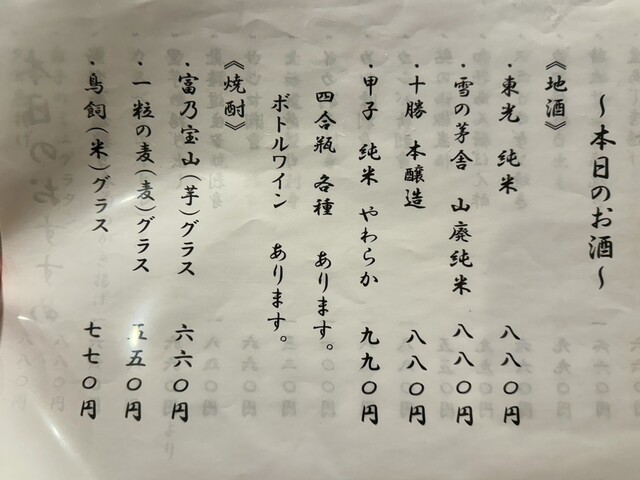 ～本日のお酒～
《地酒》
・東光 純米 八八〇円
・雪の茅舎 山廃純米 八八〇円
・十勝 本醸造 八八〇円
・甲子 純米 やわらか 九九〇円
四合瓶 各種 あります。
ボトルワイン あります。
《焼酎》
・富乃宝山（芋）グラス 六六〇円
・一粒の麦（麦）グラス 五五〇円
・鳥飼（米）グラス 七七〇円